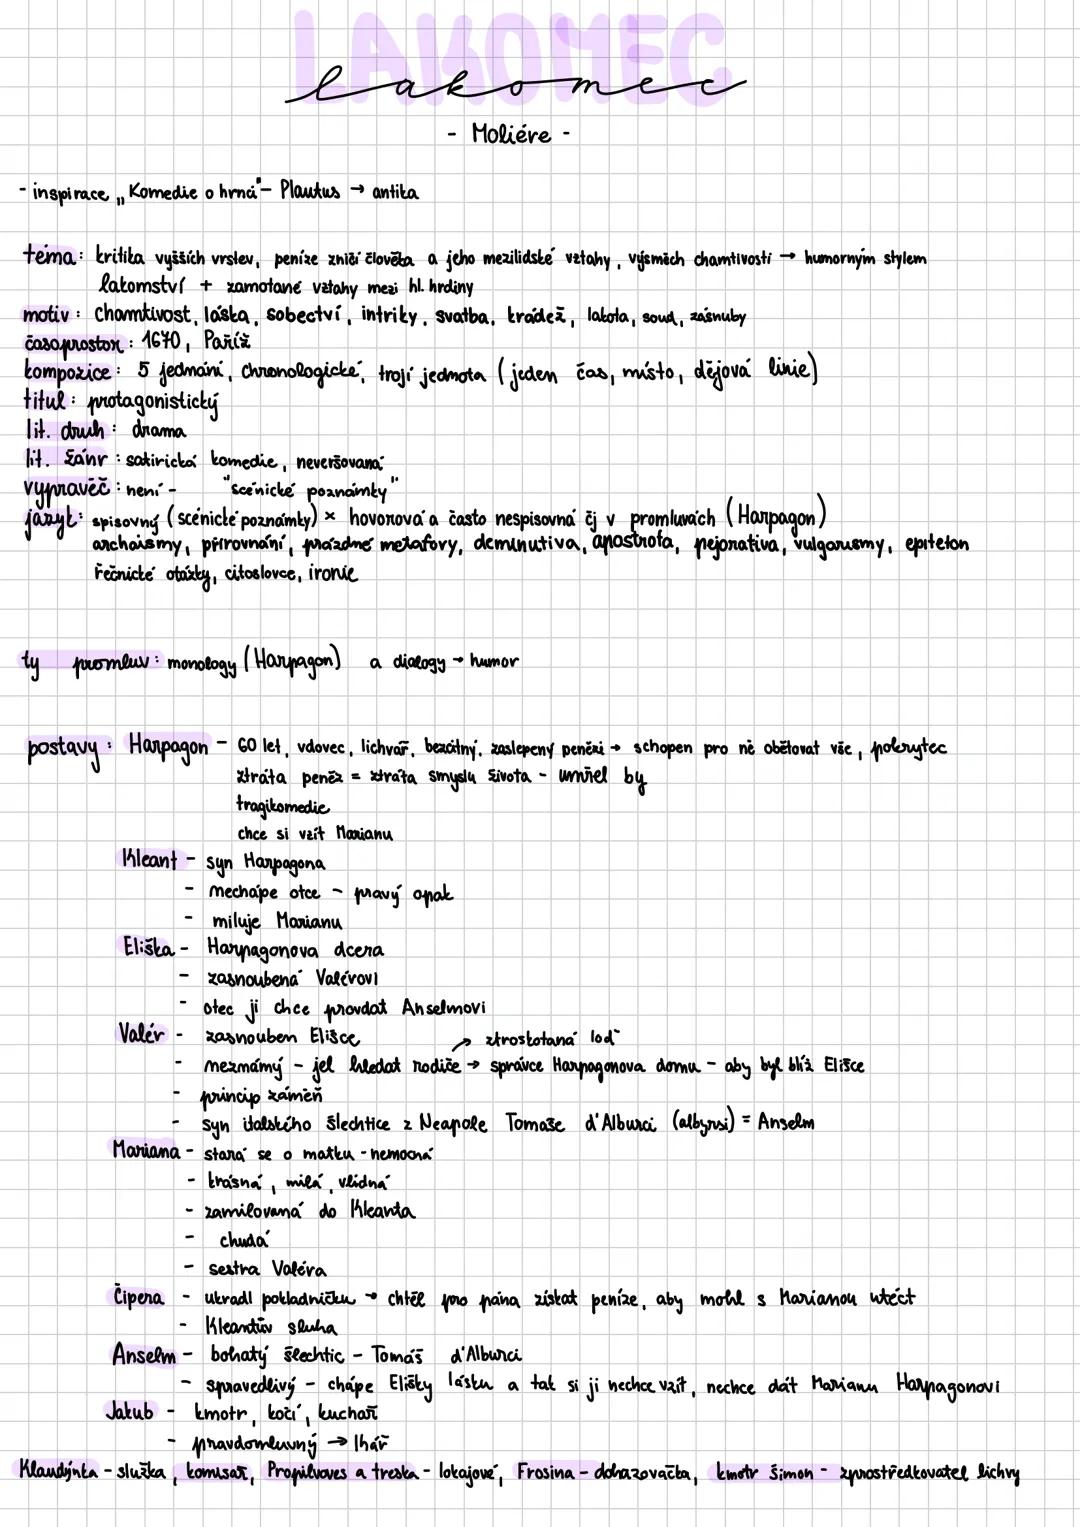 LAKOMEC
lakomec
- Moliére -
- inspirace „Komedie o hrnci" - Plautus → antika
téma: kritika vyšších vrstev, peníze zničí člověka a jeho mezilidské vztahy, výsměch chamtivosti → humorným stylem
lakomství + zamotané vztahy mezi hl. hrdiny
motiv: chamtivost, láska, sobectví, intriky, svatba, krádež, lakota, soud, zásnuby
časoprostor: 1670, Paříž
kompozice: 5 jednání, chronologické, trojí jednota (jeden čas, místo, dějová linie)
titul: protagonistický
lit. druh: drama
lit. žánr: satirická komedie, neveršovaná
vypravěč: není - "scénické poznámky"
jazyk: spisovný (scénické poznámky) × hovorová a často nespisovná čj v promluvách (Harpagon)
archaismy, přirovnání, prázdné metafory, deminutiva, apostrofa, pejorativa, vulgarismy, epiteton
řečnické otázky, citoslovce, ironie
ty promluv: monology (Harpagon) a dialogy → humor
postavy: Harpagon - 60 let, vdovec, lichvář, bezcitný, zaslepený penězi → schopen pro ně obětovat vše, pokrytec
ztráta peněz = ztráta smyslu života - umřel by
tragikomedie
chce si vzít Marianu
Kleant - syn Harpagona
- nechápe otce - pravý opak
- miluje Marianu
Eliška - Harpagonova dcera
- zasnoubená Valérovi
- otec ji chce provdat Anselmovi
Valér - zasnouben Elišce → ztroskotaná loď
- neznámý - jel hledat rodiče → správce Harpagonova domu - aby byl blíž Elišce
- princip záměn
- syn italského šlechtice z Neapole Tomaše d'Alburci (albyrsi) = Anselm
Mariana - stará se o matku - nemocná
- krásná, milá, vlídná
- zamilovaná do Kleanta
- chudá
- sestra Valéra
Čipera - ukradl pokladničku → chtěl pro pána získat peníze, aby mohl s Marianou utéct
- Kleantův sluha
Anselm - bohatý šlechtic - Tomáš d'Alburci
- spravedlivý - chápe Elišky lásku a tak si ji nechce vzít, nechce dát Marianu Harpagonovi
Jakub - kmotr, kočí, kuchař
- pravdomluvný → lhář
Klaudýnka - služka, komisař, Propilvoves a treska - lokajové, Frosina - dohazovačka, kmotr Šimon - zprostředkovatel lichvy